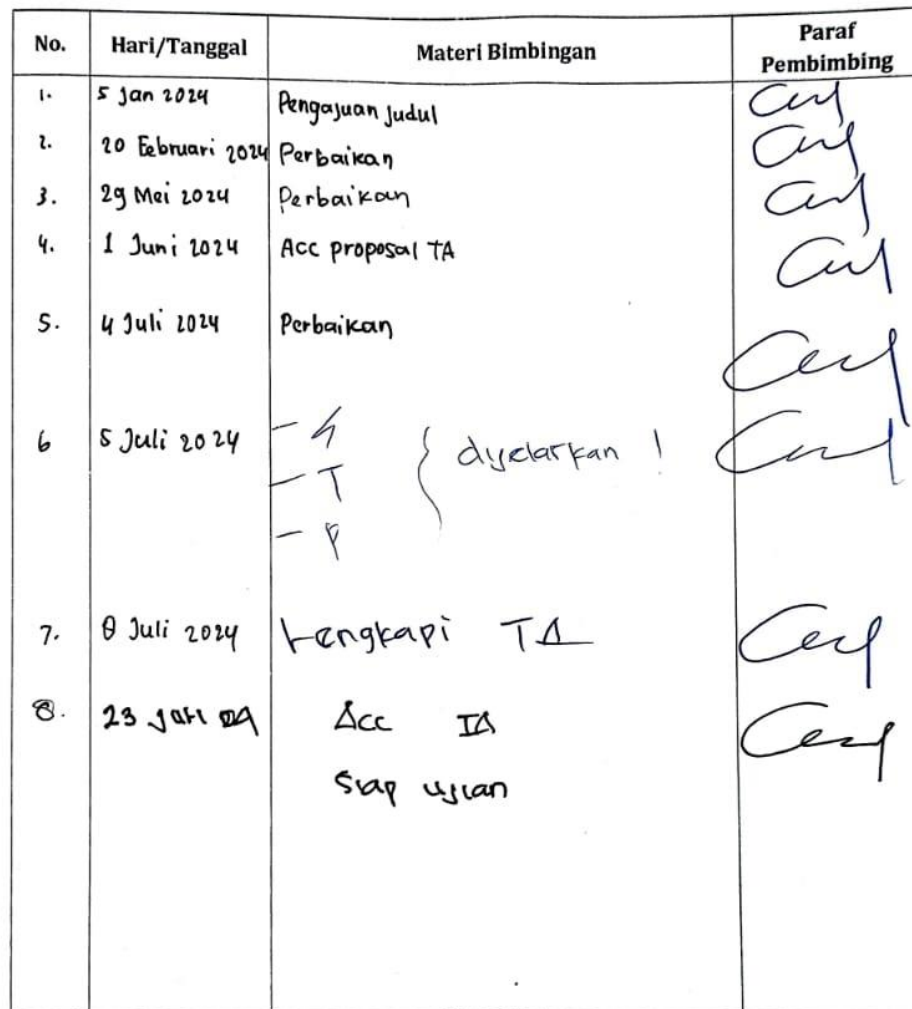 No. Hari/Tanggal Materi Bimbingan Paraf Pembimbing
1. 5 Jan 2024 Pengajuan Judul
2. 20 Februari 2024 Perbaikan
3. 29 Mei 2024 Perbaikan
4. 1 Juni 2024 Acc proposal TA
5. 4 Juli 2024 Perbaikan
6 5 Juli 2024
- T
- P
7. 8 Juli 2024 Lengkapi TA
8. 23 Acc TA
Siap ujian